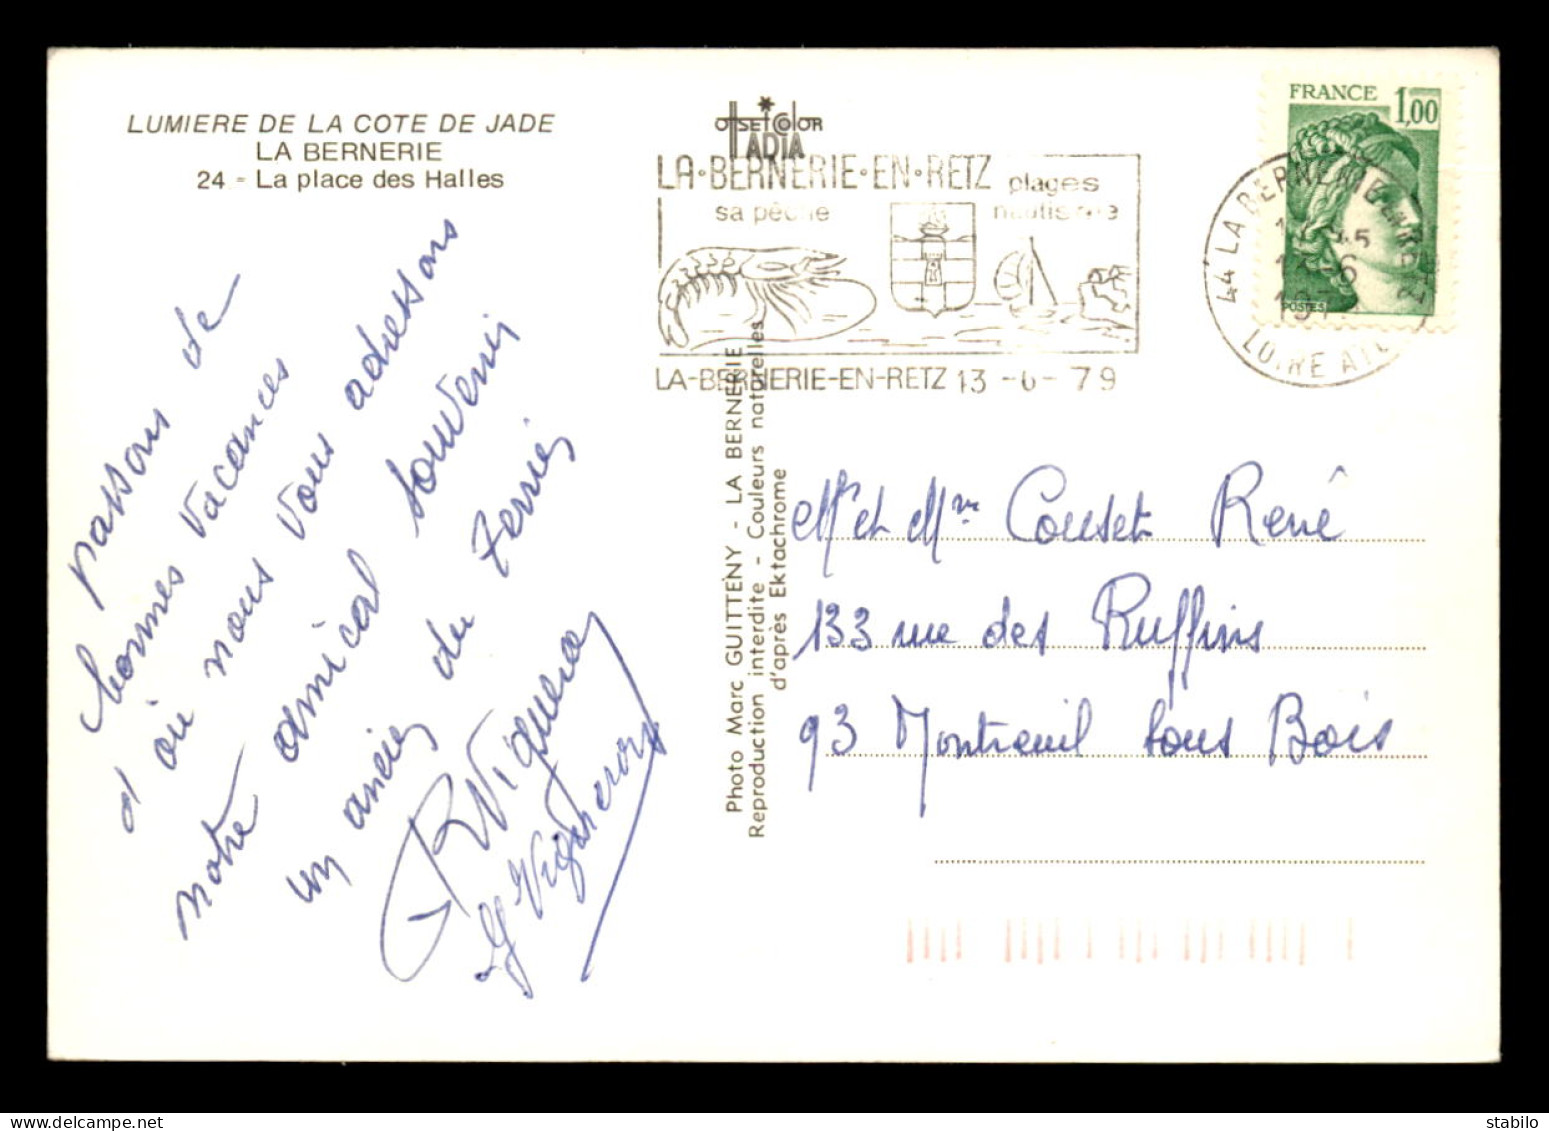 LUMIERE DE LA COTE DE JADE
LA BERNERIE
24 - La place des Halles
OffSETCOLOR
IADIA
LA•BERNERIE•EN•RETZ
plages
sa pêche
nautisme
LA-BERNERIE-EN-RETZ 13 -6- 79
FRANCE 1,00
POSTES
44 LA BERNERIE EN RETZ
LOIRE ATL
passons de
bonnes vacances
d'où nous vous adressons
notre amical souvenir
un ancien du
Photo Marc GUITTENY - LA BERNERIE
Reproduction interdite - Couleurs naturelles
d'après Ektachrome
Mr et Mme Couset René
133 rue des Ruffins
93 Montreuil sous Bois